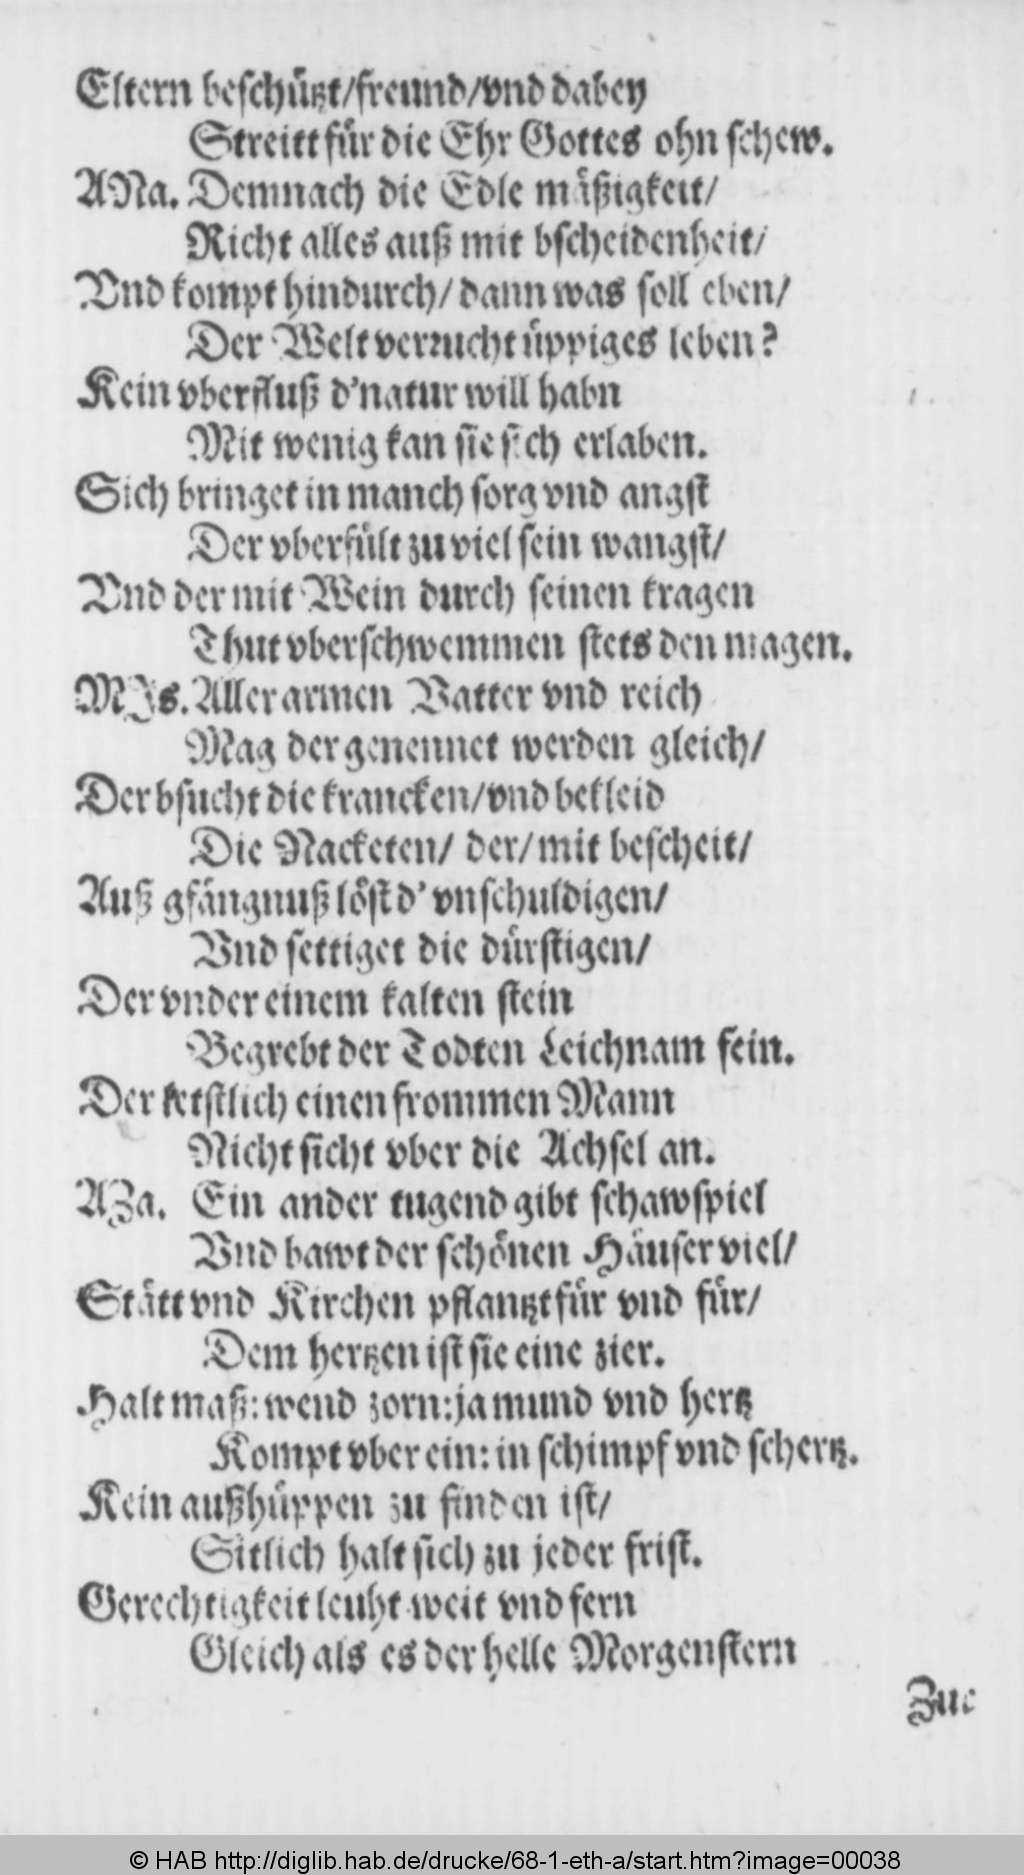 Eltern beschützt/freund/vnd dabey
Streitt für die Ehr Gottes ohn schew.
ANa. Demnach die Edle mäßigkeit/
Richt alles auß mit bscheidenheit/
Vnd kompt hindurch/ dann was soll eben/
Der Welt verrucht üppiges leben?
Kein vberfluß d'natur will habn
Mit wenig kan sie sich erlaben.
Sich bringet in manch sorg vnd angst
Der vberfült zu viel sein wangst/
Vnd der mit Wein durch seinen kragen
Thut vberschwemmen stets den magen.
MJs. Aller armen Vatter vnd reich
Mag der genennet werden gleich/
Der bsucht die krancken/vnd bekleid
Die Nacketen/ der/ mit bescheit/
Auß gfängnuß löst d' vnschuldigen/
Vnd settiget die dürstigen/
Der vnder einem kalten stein
Begrebt der Todten Leichnam fein.
Der ketstlich einen frommen Mann
Nicht sicht vber die Achsel an.
AZa. Ein ander tugend gibt schawspiel
Vnd bawt der schönen Häuser viel/
Stätt vnd Kirchen pflantzt für vnd für/
Dem hertzen ist sie eine zier.
Halt maß: wend zorn: ja mund vnd hertz
Kompt vber ein: in schimpf vnd schertz.
Kein außhüppen zu finden ist/
Sitlich halt sich zu jeder frist.
Gerechtigkeit leuht weit vnd fern
Gleich als es der helle Morgenstern
Zue
© HAB http://diglib.hab.de/drucke/68-1-eth-a/start.htm?image=00038